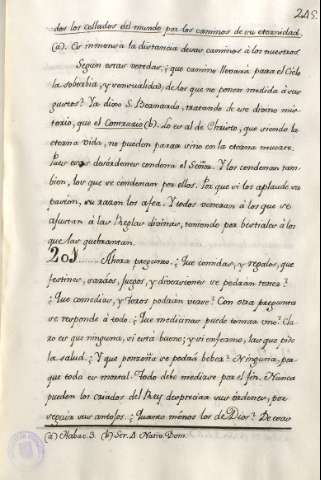 245.
dos los collados del mundo por los caminos de su eternidad
(a). Es inmensa la distancia de sus caminos á los nuestros.
Segun estas veredas, ¿que camino llevará para el Cielo
la soberbia, y sensualidad, de los que no ponen medida á sus
gustos? Ya dixo S. Bernardo, tratando de este divino mis-
terio, que el Contrario (b). Lo es al de Christo, que siendo la
eterna vida, no pueden parar sino en la eterna muerte.
Pues esos desórdenes condena el Señor. Y los condenan tam-
bien, los que se condenan por ellos. Por que si los aplaude su
pasion, su razon los afea. Y todos veneran á los que se
ajustan á las Reglas divinas, teniendo por bestiales á los
que las quebrantan.
201...... Ahora pregunto. ¿Que comidas, y regalos, que
festines, saráos, Juegos, y diversiones se podrán tener?
¿Que comedias, y Toros podrán verse? Con otra pregunta
se responde á todo. ¿Que medicinas puede tomar uno? Cla-
ro es que ninguna, si está bueno; y si enfermo, las que pide
la salud. ¿Y que ponzoña se podrá beber? Ninguna, por-
que toda es mortal. Todo debe medirse por el fin. Nunca
pueden los criados del Rey despreciar sus órdenes, por
seguir sus antojos. ¿Quanto menos los de Dios? De esas
(a) Habac. 3. (b) Ser. 1. Nativ. Dom.